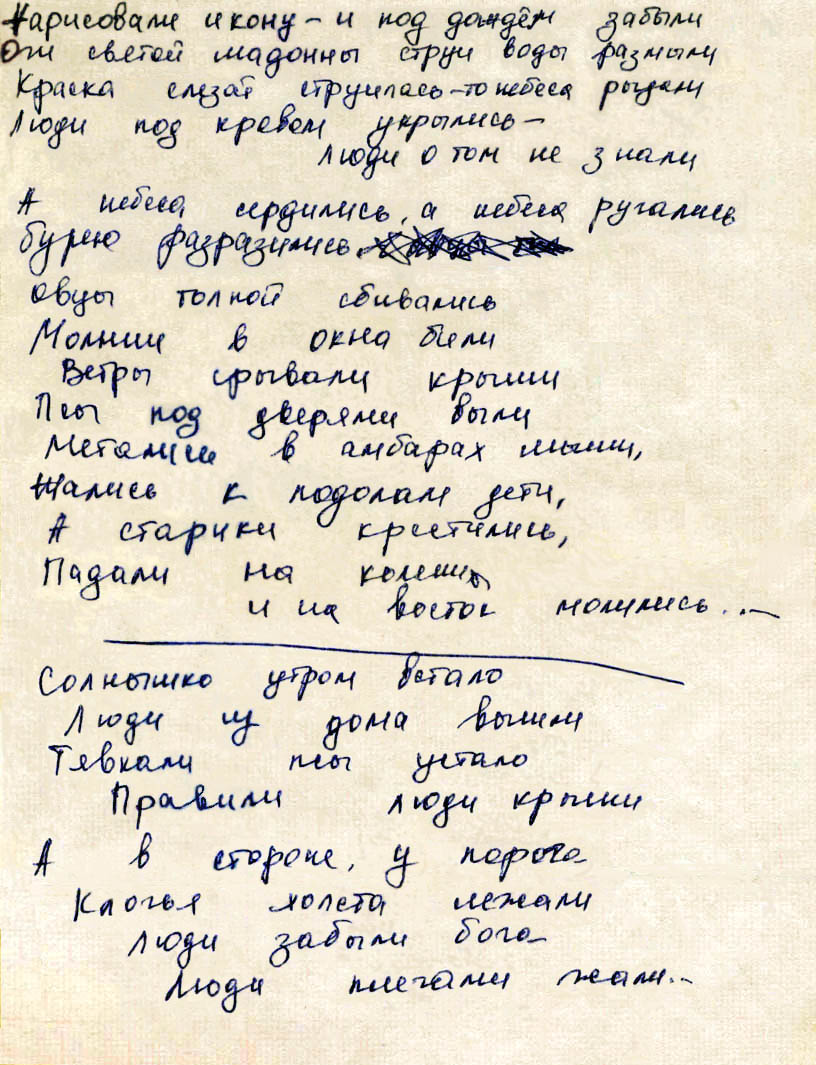 Нарисовали икону – и под дождём забыли
Очи светой мадонны струи воды размыли
Краска слезой струилась – то небеса рыдали
Люди под кровом укрылись –
люди о том не знали
А небеса сердились, а небеса ругались
бурею разразились.
Овцы толпой сбивались
Молнии в окна били
Ветры срывали крыши
Псы под дверями выли
Метались в амбарах мыши,
Жались к подолам дети,
А старики крестились,
Падали на колени
и на восток молились...
Солнышко утром встало
Люди из дома вышли
Тявкали псы устало
Правили люди крыши
А в стороне, у порога
Клочья холста лежали
Люди забыли бога
Люди плечами жали...